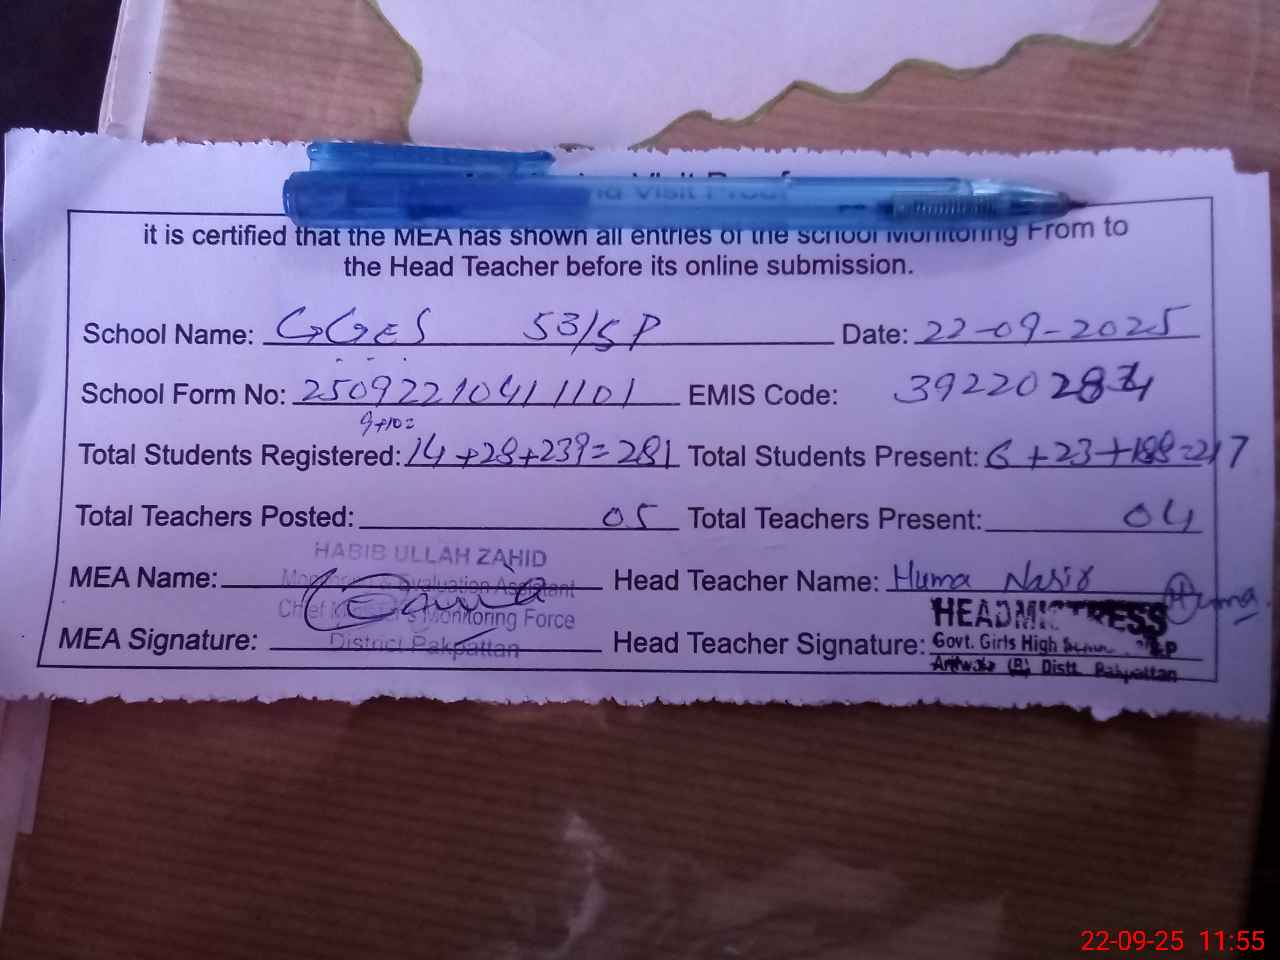 Visit Proof
it is certified that the MEA has shown all entries of the school Monitoring From to
the Head Teacher before its online submission.
School Name: GGES 53/SP Date: 22-09-2025
School Form No: 25092210411101 EMIS Code: 39220283
9+10=
Total Students Registered: 14+28+239=281 Total Students Present: 6+23+188=217
Total Teachers Posted: 05 Total Teachers Present: 04
HABIB ULLAH ZAHID
MEA Name: Monitoring & Evaluation Assistant Head Teacher Name: Huma Nasir
Chief Minister's Monitoring Force HEADMISTRESS Huma
MEA Signature: District Pakpattan Head Teacher Signature: Govt. Girls High SP
(B) Distt. Pakpattan
22-09-25 11:55